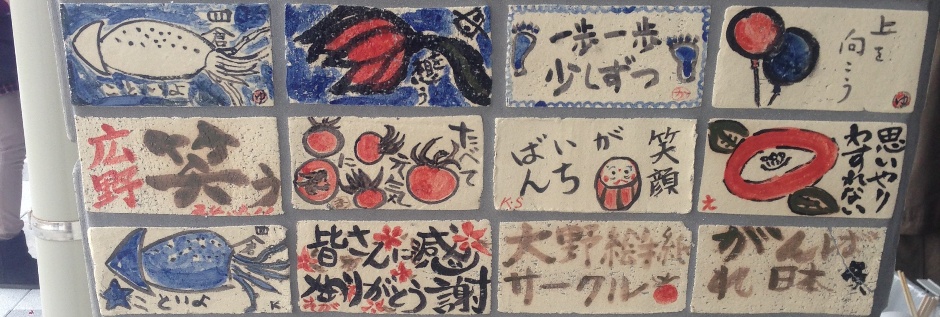 田倉
ことりよ
想う
一歩一歩
少しずつ
上を
向こう
ゆ
広野
笑う
たべて
元気に
笑顔
が
いち
ばん
K.S
思いやり
わすれない
田倉
ことりよ
皆さんに感謝
ありがとう
大野絵手紙
サークル
がんば
れ日本